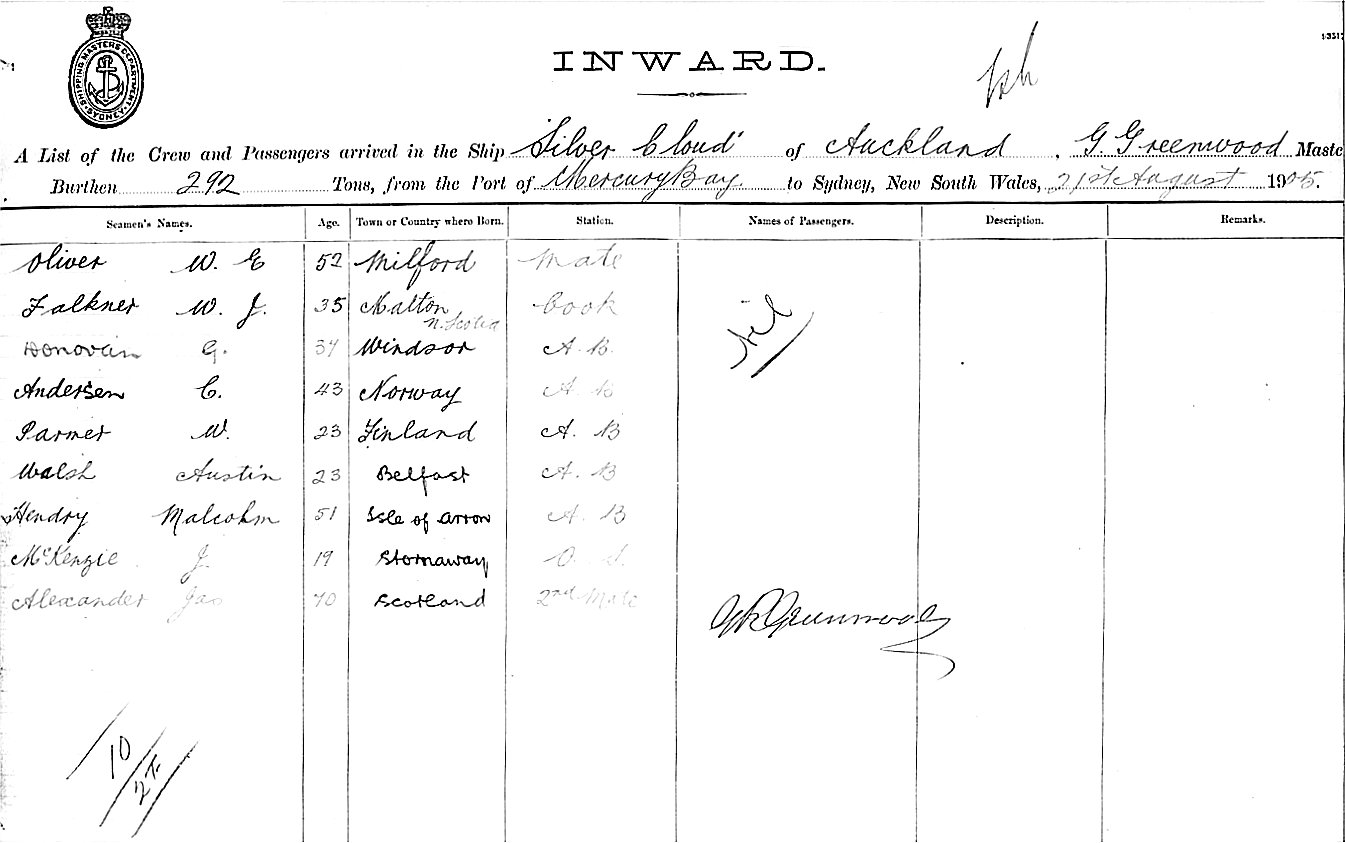 SHIPPING MASTERS DEPARTMENT · SYDNEY ·
INWARD.
A List of the Crew and Passengers arrived in the Ship Silver Cloud of Auckland . G Greenwood Maste
Burthen 292 Tons, from the Port of Mercury Bay to Sydney, New South Wales, 21st August 1905.
Seamen's Names. Age. Town or Country where Born. Station. Names of Passengers. Description. Remarks.
Oliver W. E 52 Milford Mate
Falkner W. J. 35 Malton Cook
N. Scotia
Nil
Donovan G. Windsor A. B.
Andersen C. 43 Norway A. B
Parmer W. 23 Finland A. B
Walsh Austin 23 Belfast A. B
Hendry Malcohm 51 Isle of arron A. B
McKenzie J. 19 Stornaway O. S.
Alexander Jas Scotland 2nd Mate
Greenwood
10